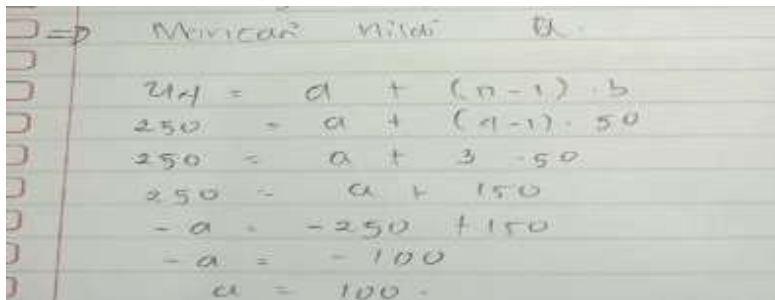 => Mencari nilai a.
U4 = a + (n-1) . b
250 = a + (4-1) . 50
250 = a + 3 . 50
250 = a + 150
- a = -250 + 150
- a = - 100
a = 100 .